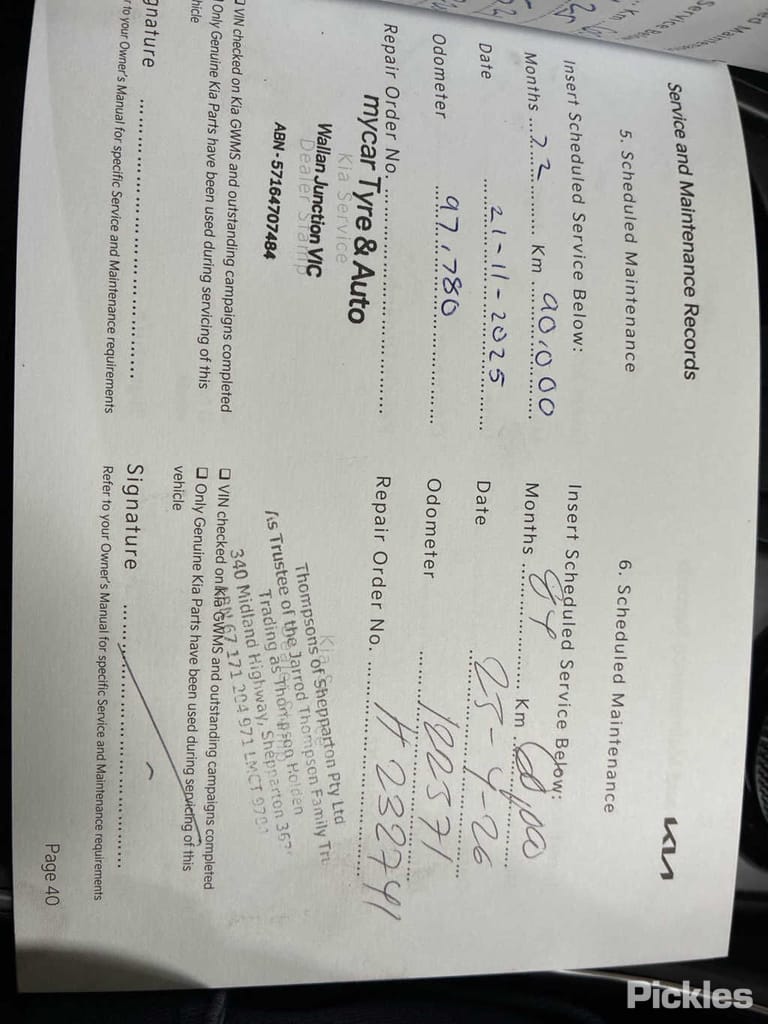 Service and Maintenance Records
KIA
5. Scheduled Maintenance
Insert Scheduled Service Below:
Months ............ Km 90,000
Date 21-11-2025
Odometer 97,780
Repair Order No. ............
Kia Service
Dealer Stamp
mycar Tyre & Auto
Wallan Junction VIC
ABN - 57164707484
VIN checked on Kia GWMS and outstanding campaigns completed
Only Genuine Kia Parts have been used during servicing of this
hicle
gnature ............
r to your Owner's Manual for specific Service and Maintenance requirements
6. Scheduled Maintenance
Insert Scheduled Service Below:
Months 84 Km
Date 25-4-26
Odometer 122571
Repair Order No. H 232741
Thompsons of Shepparton Pty Ltd
As Trustee of the Jarrod Thompson Family Tru
Trading as Thompson Holden
340 Midland Highway, Shepparton 363
ABN 67 171 204 971 LMCT
☐ VIN checked on Kia GWMS and outstanding campaigns completed
☐ Only Genuine Kia Parts have been used during servicing of this
vehicle
Signature ............
Refer to your Owner's Manual for specific Service and Maintenance requirements
Page 40
Pickles